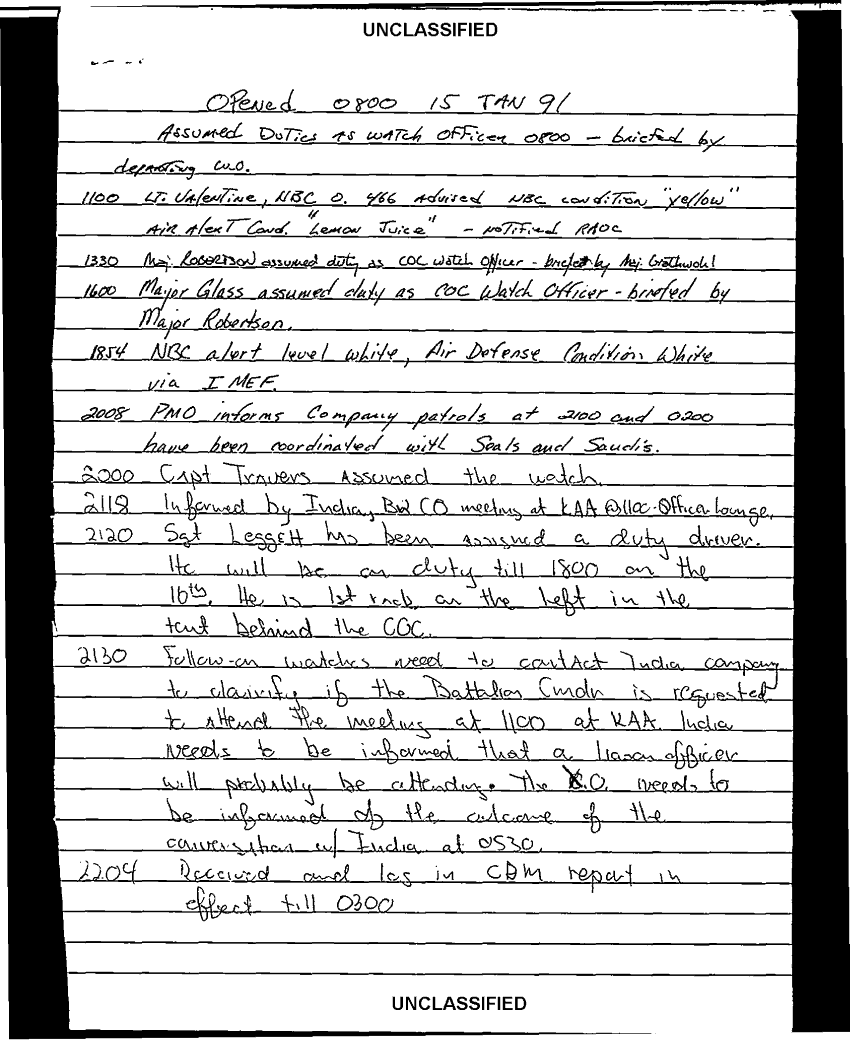 UNCLASSIFIED
Opened 0800 15 JAN 91
Assumed Duties as watch officer 0800 - briefed by
departing W.O.
1100 Lt. Valentine, NBC O. 466 advised NBC condition "yellow"
Air Alert Cond. "Lemon Juice" - notified RAOC
1330 Maj. Robertson assumed duty as COC Watch Officer - briefed by Maj. Grathwohl
1600 Major Glass assumed duty as COC Watch Officer - briefed by
Major Robertson.
1854 NBC alert level white, Air Defense Condition White
via I MEF.
2008 PMO informs Company patrols at 2100 and 0200
have been coordinated with Seals and Saudis.
2000 Capt Travers assumed the watch.
2118 Informed by India, Bn CO meeting at KAA @1100-Officer Lounge.
2120 Sgt Leggett has been assigned a duty driver.
He will be on duty till 1800 on the
16th. He is 1st rack on the left in the
tent behind the COC.
2130 Follow-on watches need to contact India company
to clairify if the Battalion Cmdr is requested
to attend the meeting at 1100 at KAA. India
needs to be informed that a liason officer
will probably be attending. The X.O. needs to
be informed of the outcome of the
conversation w/ India at 0530.
2204 Received and log in CBM report in
effect till 0300
UNCLASSIFIED